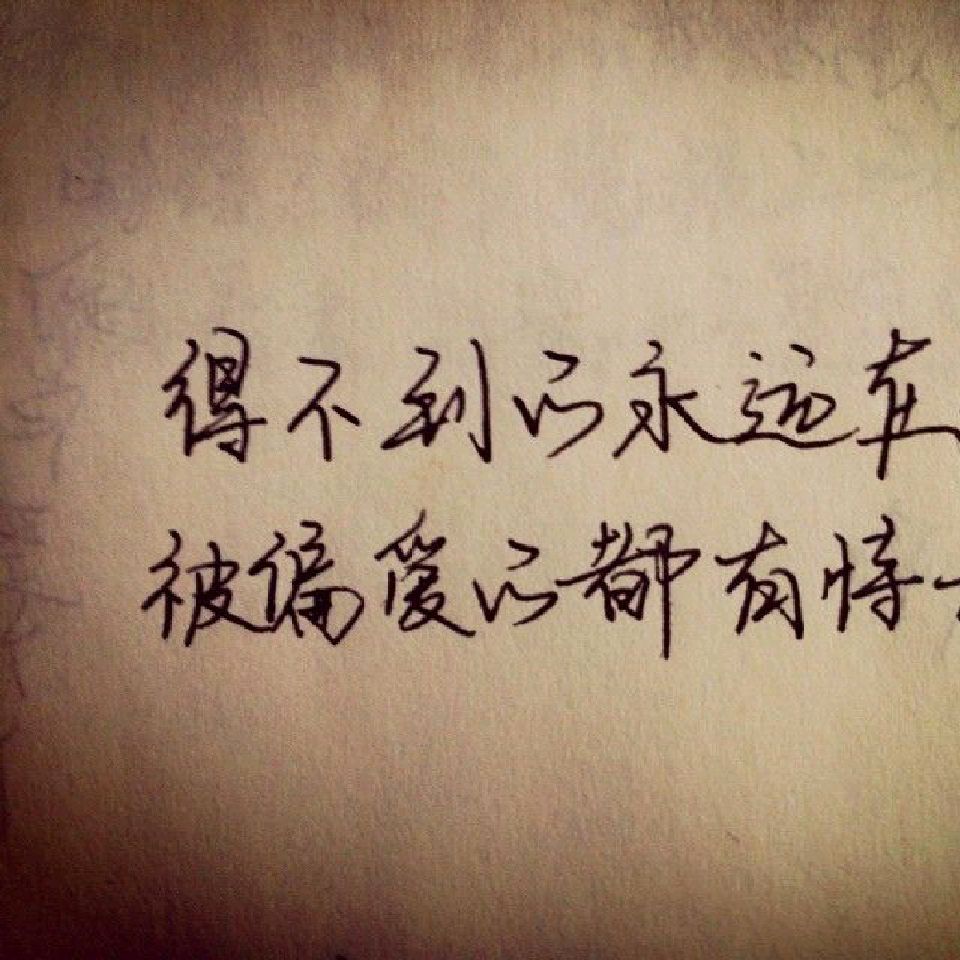 得不到的永远在
被偏爱的都有恃